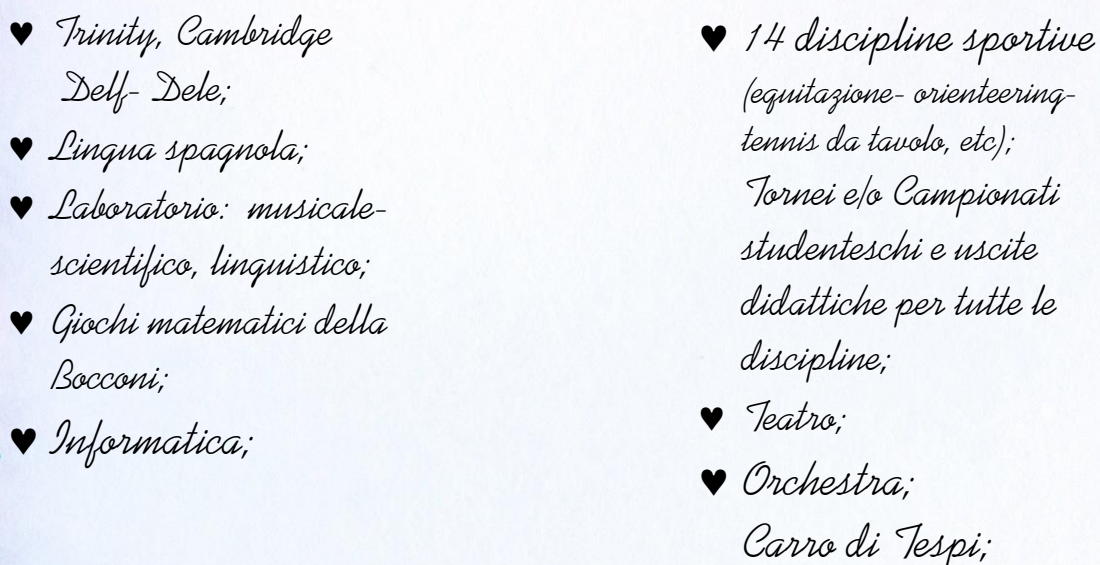 ♥ Trinity, Cambridge
Delf- Dele;
♥ Lingua spagnola;
♥ Laboratorio: musicale-
scientifico, linguistico;
♥ Giochi matematici della
Bocconi;
♥ Informatica;
♥ 14 discipline sportive
(equitazione- orienteering-
tennis da tavolo, etc);
Tornei e/o Campionati
studenteschi e uscite
didattiche per tutte le
discipline;
♥ Teatro;
♥ Orchestra;
Carro di Tespi;